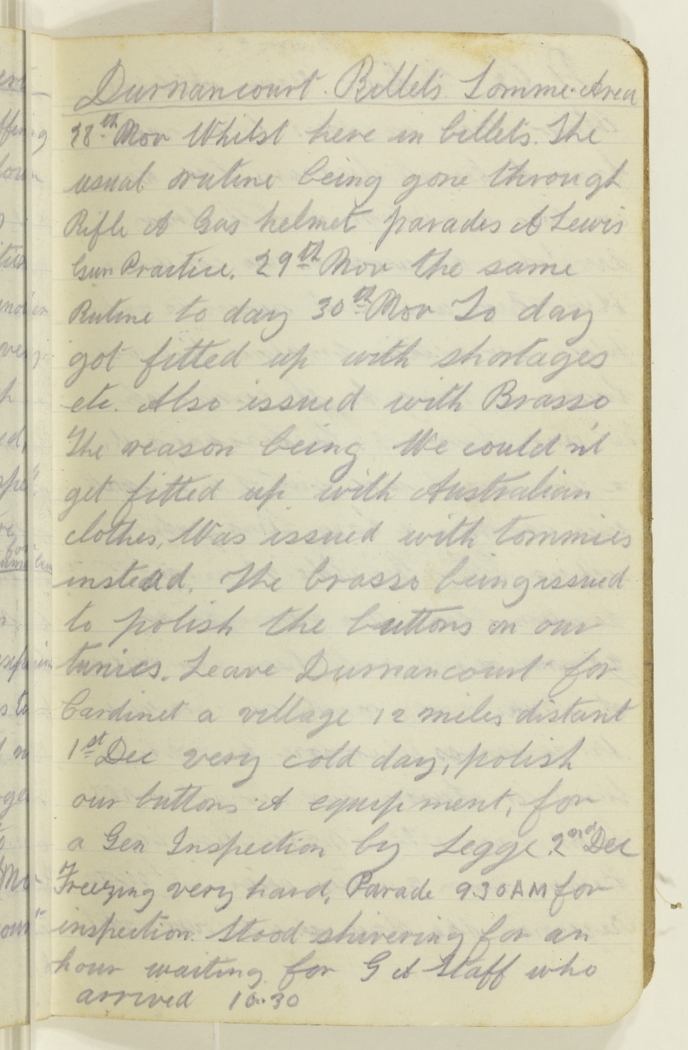 Durnancourt. Billets Somme. Area
28th Nov Whilst here in billets. The
usual rutine being gone through
Rifle & Gas helmet parades & Lewis
Gun Practice. 29th Nov the same
Rutine to day 30th Nov To day
got fitted up with shortages
etc. Also issued with Brasso
The reason being We could'nt
get fitted up with Australian
clothes, Was issued with tommies
instead. The brasso being issued
to polish the buttons on our
tunics. Leave Durnancourt for
Cardinet a village 12 miles distant
1st Dec very cold day, polish
our buttons & equipment, for
a Gen Inspection by Legge. 2nd Dec
Freezing very hard, Parade 930AM for
inspection. Stood shivering for an
hour waiting for G & Staff who
arrived 10.30